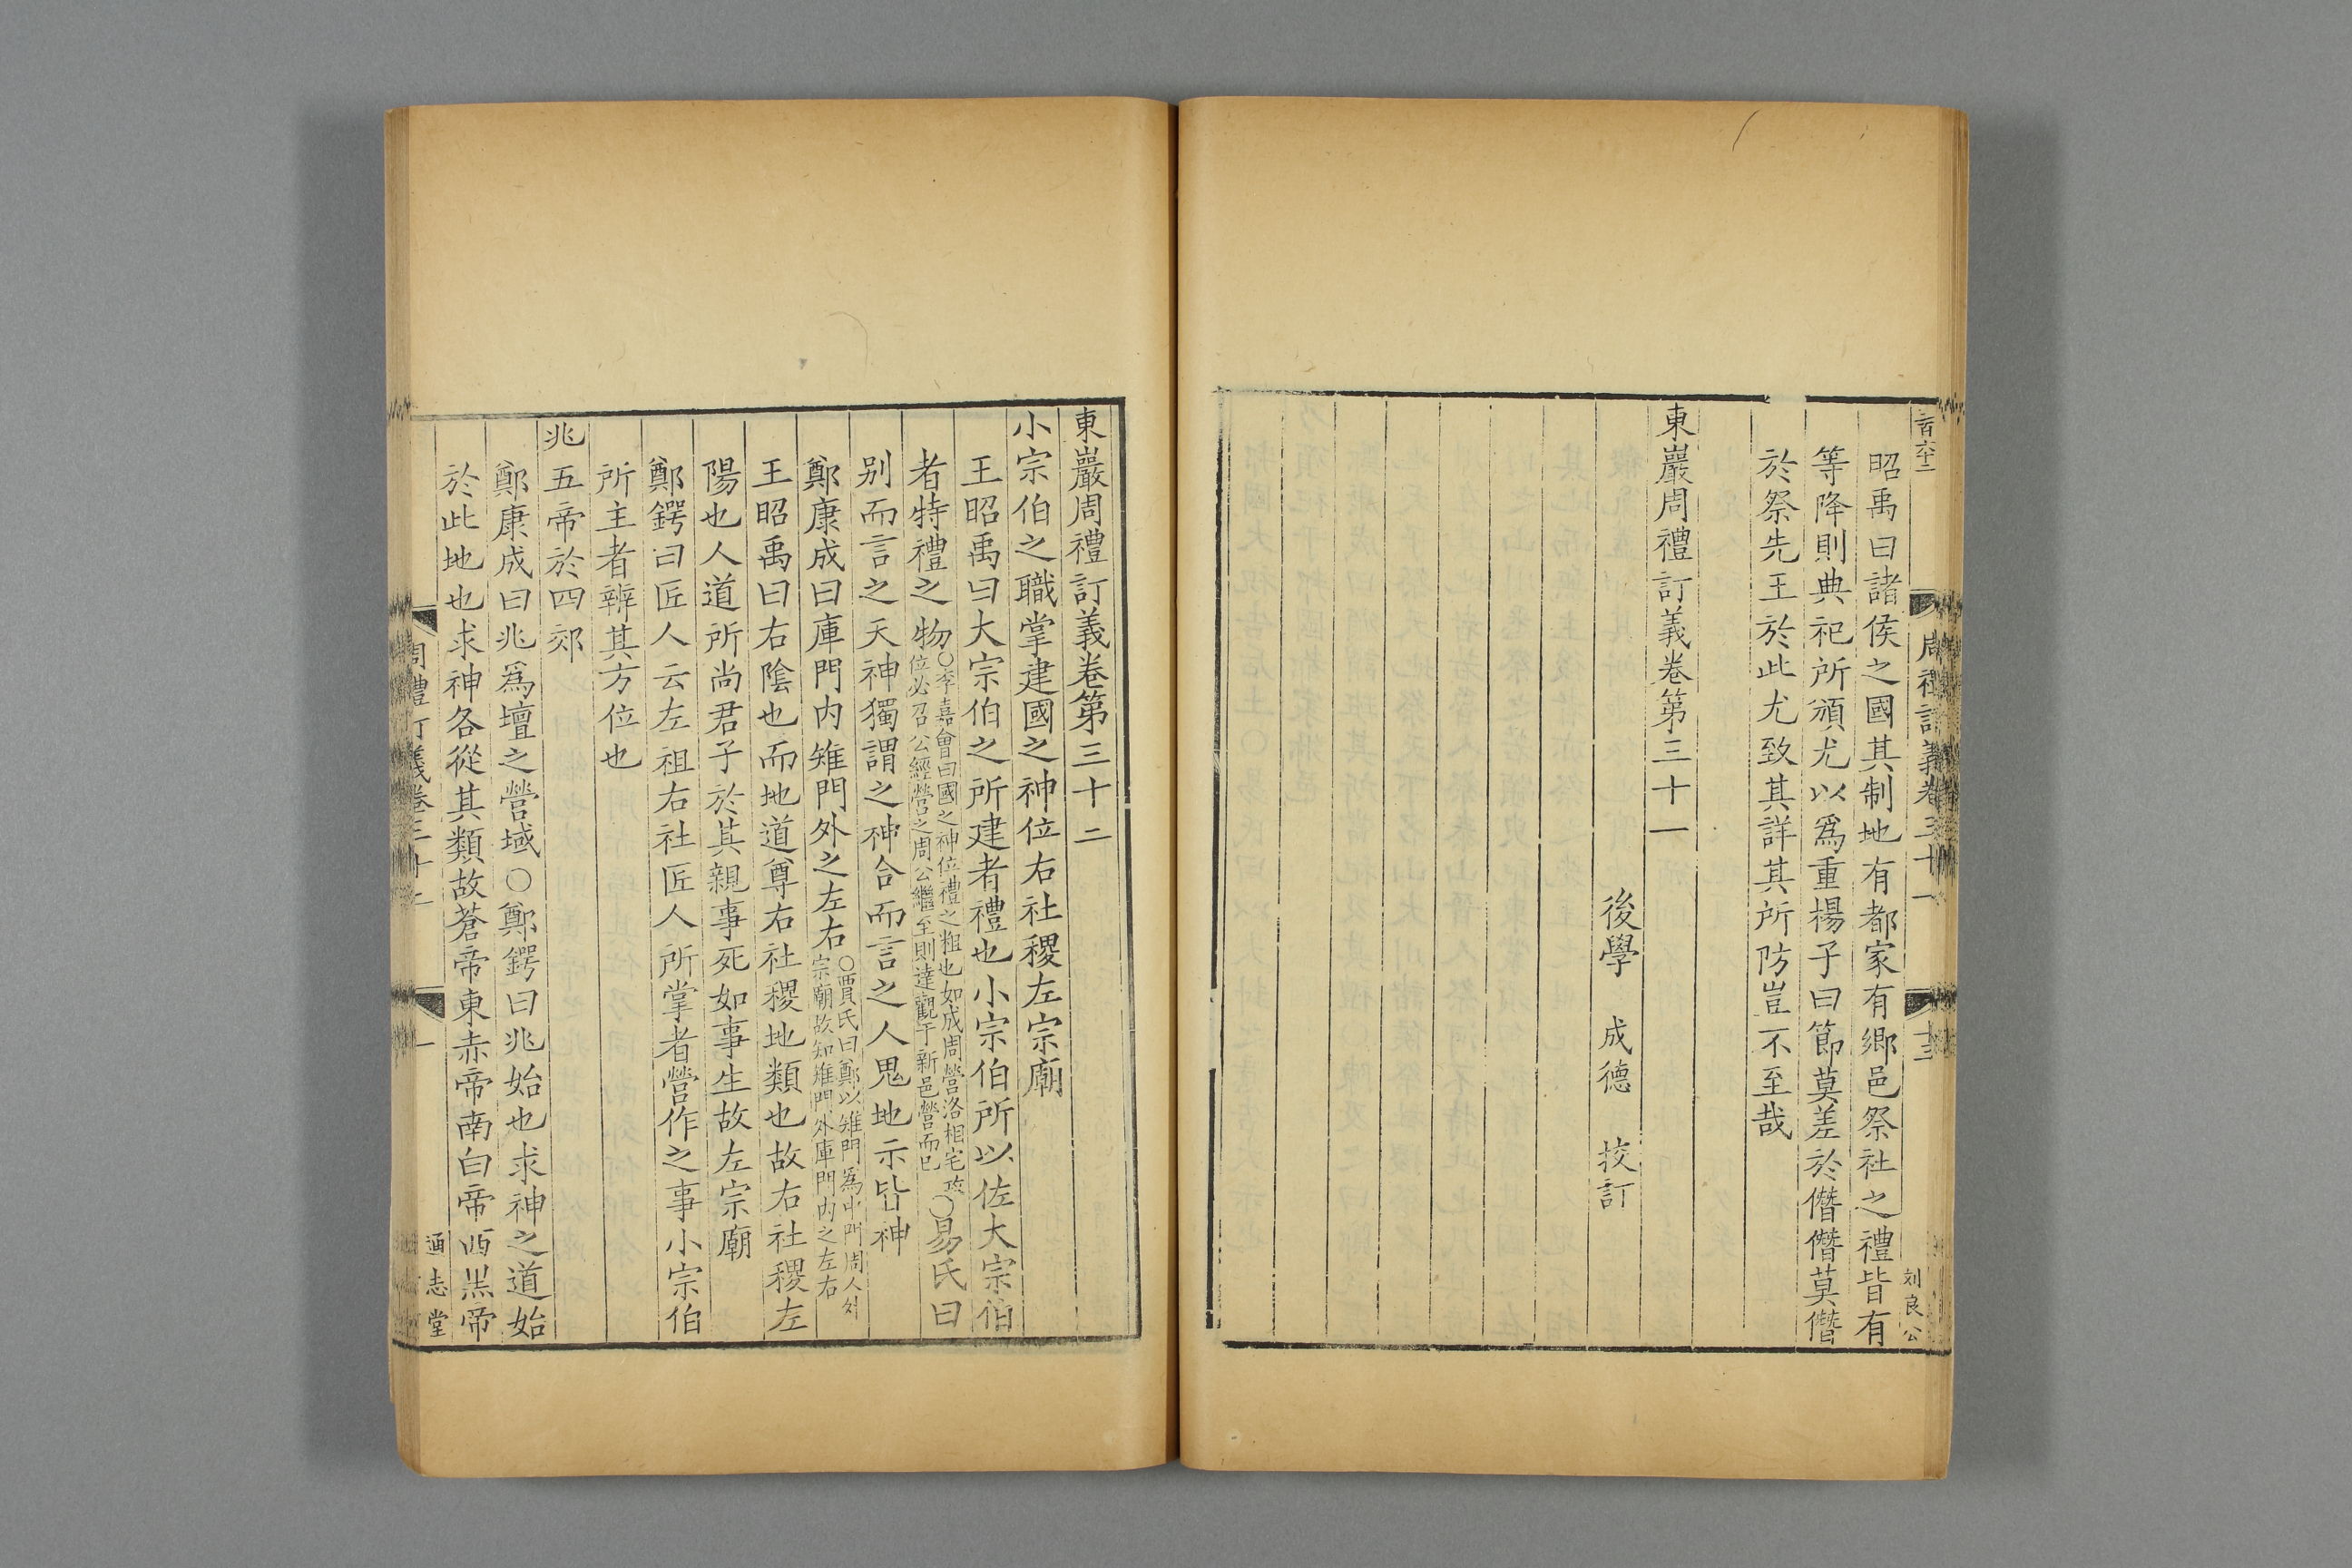 百六十二
周禮訂義卷三十一
十三
刘良公
昭禹曰諸侯之國其制地有都家有鄉邑祭社之禮皆有
等降則典祀所頒尤以爲重楊子曰節莫差於僭僭莫僭
於祭先王於此尤致其詳其所防豈不至哉
東巖周禮訂義卷第三十一
後學 成德 挍訂
東巖周禮訂義卷第三十二
小宗伯之職掌建國之神位右社稷左宗廟
王昭禹曰大宗伯之所建者禮也小宗伯所以佐大宗伯
者特禮之物○李嘉會曰國之神位禮之粗也如成周營洛相宅攻
位必召公經營之周公繼至則達觀于新邑營而已○易氏曰
别而言之天神獨謂之神合而言之人鬼地示皆神
鄭康成曰庫門内雉門外之左右○賈氏曰鄭以雉門爲中門周人外
宗廟故知雉門外庫門内之左右
王昭禹曰右陰也而地道尊右社稷地類也故右社稷左
陽也人道所尚君子於其親事死如事生故左宗廟
鄭鍔曰匠人云左祖右社匠人所掌者營作之事小宗伯
所主者辨其方位也
兆五帝於四郊
鄭康成曰兆爲壇之營域○鄭鍔曰兆始也求神之道始
於此地也求神各從其類故蒼帝東赤帝南白帝西黑帝
周禮訂義卷三十二
一
通志堂